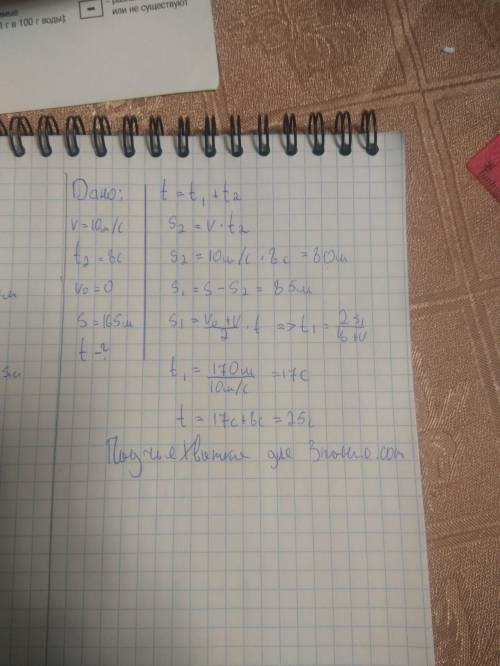 1 г в 100 г воды);
или не существуют
Дано:
v = 10м/с
t₂ = 8с
v₀ = 0
S = 165м
t - ?
t = t₁ + t₂
S₂ = v · t₂
S₂ = 10м/с · 8с = 80м
S₁ = S - S₂ = 85м
S₁ = (v₀ + v)/2 · t => t₁ = 2S₁/(v₀ + v)
t₁ = 170м/10м/с = 17с
t = 17с + 8с = 25с
для Знания.com